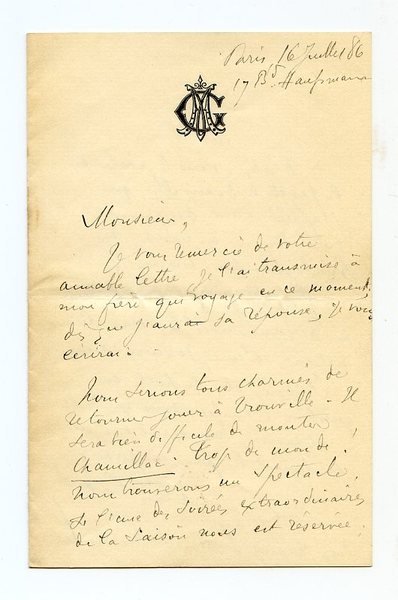 Paris 16 Juillet 86
17 Bd. Haussmann
Monsieur,
Je vous remercie de votre
aimable lettre je l'ai transmise à
mon frère qui voyage en ce moment,
dès que j'aurai sa réponse, je vous
écrirai.
Nous serions tous charmés de
retourner jouer à Trouville. Il
sera bien difficile de monter
Chamillac. trop de monde.
Nous trouverons un spectacle,
si l'une des soirées extraordinaires
de la saison nous est réservée.